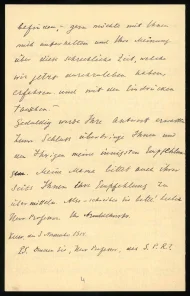 befinden, – gern möchte mit Ihnen
mich unterhalten und Ihre Meinung
über diese schreckliche Zeit, welche
wir jetzt durchzuleben haben,
erfahren und mit den Eindrücken
tauschen –
Geduldig werde Ihre Antwort erwarten
zum Schluss übersende Ihnen und
den Ihrigen meine innigsten Empfehlungen
Meine Mama bittet auch ihrer-
seits Ihnen ihre Empfehlung zu
übermitteln. Also, schreiben Sie bitte, bester
Herr Professor
November
P.S. Herr Professor, der S. P. R.?
4